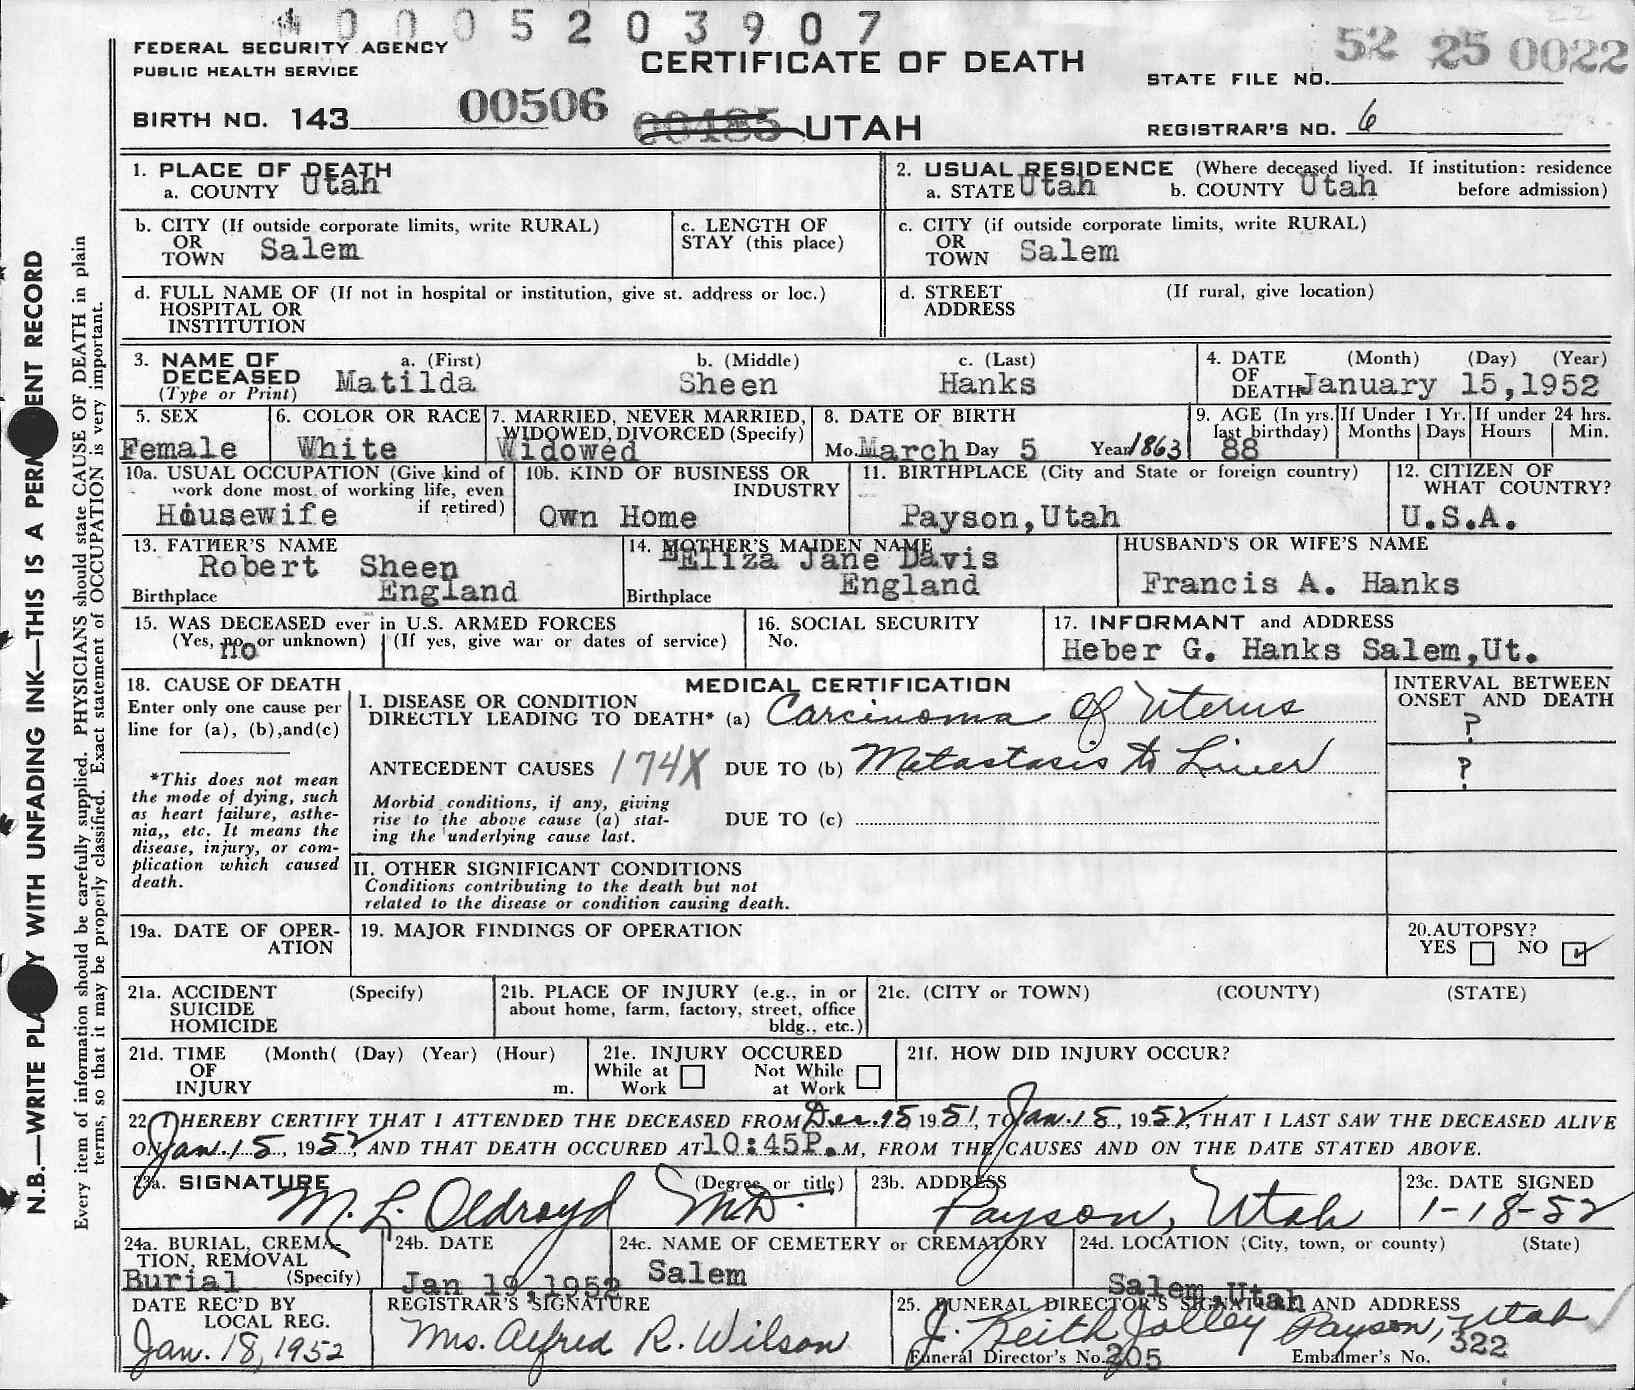 4 0 0 0 5 2 0 3 9 0 7
FEDERAL SECURITY AGENCY
PUBLIC HEALTH SERVICE
CERTIFICATE OF DEATH
STATE FILE NO. 52 25 0022
BIRTH NO. 143 00506 00485 UTAH
REGISTRAR'S NO. 6
1. PLACE OF DEATH
a. COUNTY Utah
2. USUAL RESIDENCE (Where deceased lived. If institution: residence
a. STATE Utah b. COUNTY Utah before admission)
b. CITY (If outside corporate limits, write RURAL)
OR
TOWN Salem
c. LENGTH OF
STAY (this place)
c. CITY (if outside corporate limits, write RURAL)
OR
TOWN Salem
d. FULL NAME OF (If not in hospital or institution, give st. address or loc.)
HOSPITAL OR
INSTITUTION
d. STREET (If rural, give location)
ADDRESS
3. NAME OF a. (First) b. (Middle) c. (Last)
DECEASED Matilda Sheen Hanks
(Type or Print)
4. DATE (Month) (Day) (Year)
OF
DEATH January 15,1952
5. SEX
Female
6. COLOR OR RACE
White
7. MARRIED, NEVER MARRIED,
WIDOWED, DIVORCED (Specify)
Widowed
8. DATE OF BIRTH
Mo. March Day 5 Year 1863
9. AGE (In yrs.
last birthday)
88
If Under 1 Yr.
Months Days
If under 24 hrs.
Hours Min.
10a. USUAL OCCUPATION (Give kind of
work done most of working life, even
if retired)
Housewife
10b. KIND OF BUSINESS OR
INDUSTRY
Own Home
11. BIRTHPLACE (City and State or foreign country)
Payson,Utah
12. CITIZEN OF
WHAT COUNTRY?
U.S.A.
13. FATHER'S NAME
Robert Sheen
Birthplace England
14. MOTHER'S MAIDEN NAME
Eliza Jane Davis
Birthplace England
HUSBAND'S OR WIFE'S NAME
Francis A. Hanks
15. WAS DECEASED ever in U.S. ARMED FORCES
(Yes, no, or unknown) (If yes, give war or dates of service)
no
16. SOCIAL SECURITY
No.
17. INFORMANT and ADDRESS
Heber G. Hanks Salem,Ut.
18. CAUSE OF DEATH
Enter only one cause per
line for (a), (b),and(c)
*This does not mean
the mode of dying, such
as heart failure, asthe-
nia,, etc. It means the
disease, injury, or com-
plication which caused
death.
MEDICAL CERTIFICATION
I. DISEASE OR CONDITION
DIRECTLY LEADING TO DEATH* (a) Carcinoma Of Uterus
ANTECEDENT CAUSES 174X DUE TO (b) Metastasis to Liver
Morbid conditions, if any, giving
rise to the above cause (a) stat-
ing the underlying cause last.
DUE TO (c)
INTERVAL BETWEEN
ONSET AND DEATH
?
?
II. OTHER SIGNIFICANT CONDITIONS
Conditions contributing to the death but not
related to the disease or condition causing death.
19a. DATE OF OPER-
ATION
19. MAJOR FINDINGS OF OPERATION
20.AUTOPSY?
YES NO ✓
21a. ACCIDENT (Specify)
SUICIDE
HOMICIDE
21b. PLACE OF INJURY (e.g., in or
about home, farm, factory, street, office
bldg., etc.)
21c. (CITY or TOWN) (COUNTY) (STATE)
21d. TIME (Month( (Day) (Year) (Hour)
OF
INJURY m.
21e. INJURY OCCURED
While at Not While
Work at Work
21f. HOW DID INJURY OCCUR?
22 I HEREBY CERTIFY THAT I ATTENDED THE DECEASED FROM Dec. 15 1951, TO Jan. 15, 1952, THAT I LAST SAW THE DECEASED ALIVE
ON Jan. 15, 1952, AND THAT DEATH OCCURED AT 10:45P.M, FROM THE CAUSES AND ON THE DATE STATED ABOVE.
23a. SIGNATURE (Degree or title)
M. L. Oldroyd M.D.
23b. ADDRESS
Payson, Utah
23c. DATE SIGNED
1-18-52
24a. BURIAL, CREMA-
TION, REMOVAL
Burial (Specify)
24b. DATE
Jan 19,1952
24c. NAME OF CEMETERY or CREMATORY
Salem
24d. LOCATION (City, town, or county) (State)
Salem,Utah
DATE REC'D BY
LOCAL REG.
Jan. 18, 1952
REGISTRAR'S SIGNATURE
Mrs. Alfred R. Wilson
25. FUNERAL DIRECTOR'S SIGNATURE AND ADDRESS
J. Keith Jolley Payson, Utah
Funeral Director's No. 205 Embalmer's No. 322
N.B.—WRITE PLA Y WITH UNFADING INK—THIS IS A PERM ENT RECORD
Every item of information should be carefully supplied. PHYSICIANS should state CAUSE OF DEATH in plain
terms, so that it may be properly classified. Exact statement of OCCUPATION is very important.